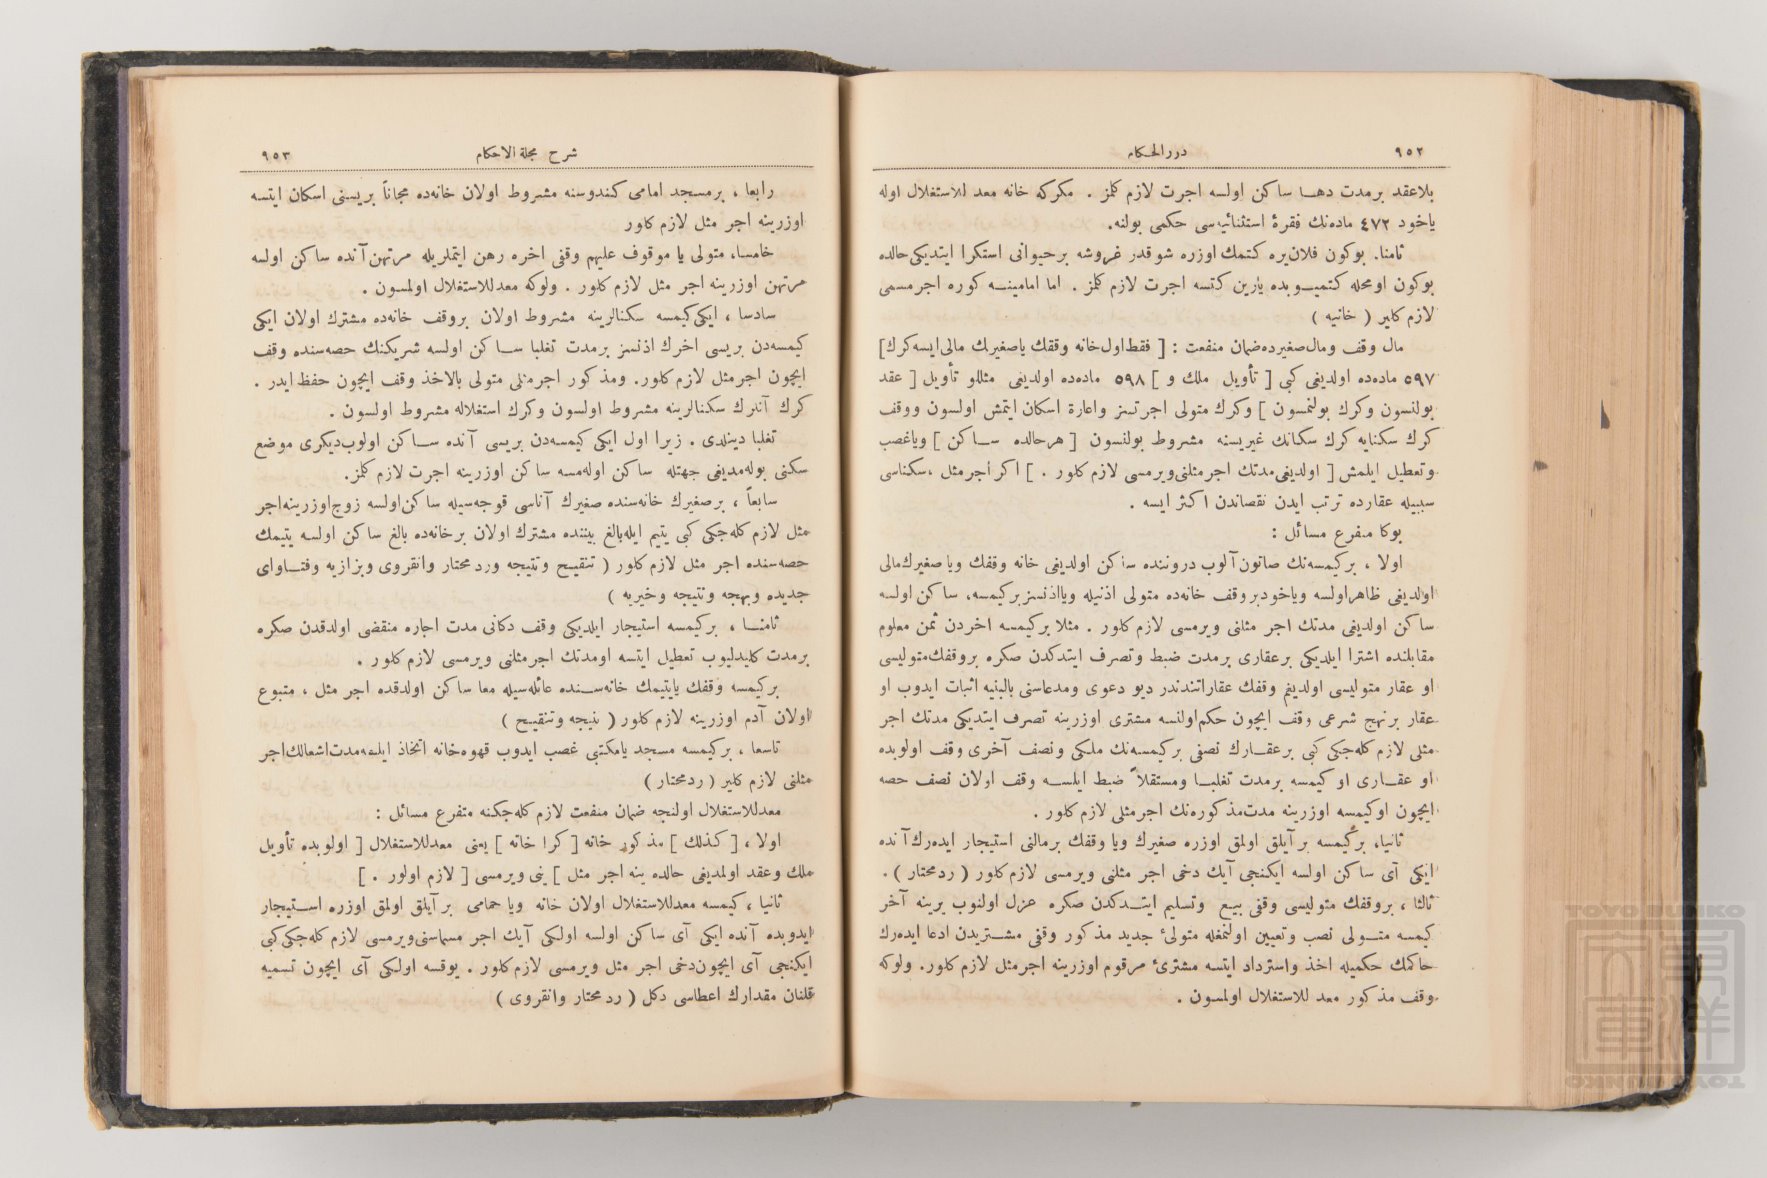 ٩٥٢
دررالحكام
بلاعقد برمدت دها ساكن اولسه اجرت لازم كلمز . مكركه خانه معد للاستغلال اوله
ياخود ٤٧٢ ماده‌نك فقرۀ استثنائيه‌سى حكمى بولنه.
ثامنا. بوكون فلان‌يره كتمك اوزره شوقدر غروشه برحيوانى استكرا ايتديكى حالده
بوكون اومحله كتميوبده يارين كتسه اجرت لازم كلمز . اما امامينه كوره اجرمسمى
لازم كلير ( خانيه )
مال وقف ومال‌صغيرده‌ضمان منفعت : [ فقط‌اول‌خانه وقفك ياصغيرك مالى‌ايسه‌كرك]
٥٩٧ ماده‌ده اولديغى كبى [ تأويل ملك و ] ٥٩٨ ماده‌ده اولديغى مثللو تأويل [ عقد
بولنسون وكرك بولنمسون ] وكرك متولى اجرتسز واعارة اسكان ايتمش اولسون ووقف
كرك سكنايه كرك سكنانك غيريسنه مشروط بولنسون [ هرحالده ساكن ] وياغصب
وتعطيل ايلمش [ اولديغى‌مدتك اجرمثلنى‌ويرمسى لازم كلور . ] اكر اجرمثل ،سكناسى
سببيله عقارده ترتب ايدن نقصاندن اكثر ايسه .
بوكا متفرع مسائل :
اولا ، بركيمسه‌نك صاتون آلوب دروننده ساكن اولديغى خانه وقفك ويا صغيرك‌مالى
اولديغى ظاهراولسه وياخودبروقف خانه‌ده متولى اذنيله ويااذنسزبركيمسه، ساكن اولسه
ساكن اولديغى مدتك اجر مثلنى ويرمسى لازم كلور . مثلا بركيمسه اخردن ثمن معلوم
مقابلنده اشترا ايلديكى برعقارى برمدت ضبط وتصرف ايتدكدن صكره بروقفك‌متوليسى
او عقار متوليسى اولديغم وقفك عقاراتندندر ديو دعوى ومدعاسنى بالبنيه اثبات ايدوب او
عقار برنهج شرعى وقف ايچون حكم‌اولنسه مشترى اوزرينه تصرف ايتديكى مدتك اجر
مثلى لازم كله‌جكى كبى برعقارك نصفى بركيمسه‌نك ملكى ونصف آخرى وقف اولوبده
او عقارى اوكيمسه برمدت تغلبا ومستقلاً ضبط ايلسه وقف اولان نصف حصه
ايچون اوكيمسه اوزرينه مدت‌مذكوره‌نك اجرمثلى لازم كلور .
ثانيا، بركيمسه برآيلق اولمق اوزره صغيرك ويا وقفك برمالنى استيجار ايده‌رك‌آنده
ايكى آى ساكن اولسه ايكنجى آيك دخى اجر مثلنى ويرمسى لازم كلور ( ردمحتار ) .
ثالثا ، بروقفك متوليسى وقفى بيع وتسليم ايتدكدن صكره عزل اولنوب يرينه آخر
كيمسه متولى نصب وتعيين اولنمغله متولئ جديد مذكور وقفى مشتريدن ادعا ايده‌رك
حاكمك حكميله اخذ واسترداد ايتسه مشترئ مرقوم اوزرينه اجرمثل لازم كلور. ولوكه
وقف مذكور معد للاستغلال اولمسون .
شرح مجلة الاحكام
٩٥٣
رابعا ، برمسجد امامى كندوسنه مشروط اولان خانه‌ده مجاناً بريسنى اسكان ايتسه
اوزرينه اجر مثل لازم كلور
خامسا، متولى يا موقوف عليهم وقفى اخره رهن ايتملريله مرتهن آنده ساكن اولسه
مرتهن اوزرينه اجر مثل لازم كلور . ولوكه معدللاستغلال اولمسون .
سادسا ، ايكى‌كيمسه سكنالرينه مشروط اولان بروقف خانه‌ده مشترك اولان ايكى
كيمسه‌دن بريسى اخرك اذنسز برمدت تغلبا ساكن اولسه شريكنك حصه‌سنده وقف
ايچون اجرمثل لازم كلور. ومذكور اجرمثلى متولى بالاخذ وقف ايچون حفظ ايدر .
كرك آنلرك سكنالرينه مشروط اولسون وكرك استغلاله مشروط اولسون .
تغلبا دينلدى . زيرا اول ايكى كيمسه‌دن بريسى آنده ساكن اولوب‌ديكرى موضع
سكنى بوله‌مديغى جهتله ساكن اوله‌مسه ساكن اوزرينه اجرت لازم كلمز.
سابعاً ، برصغيرك خانه‌سنده صغيرك آناسى قوجه‌سيله ساكن‌اولسه زوج‌اوزرينه‌اجر
مثل لازم كله‌جكى كبى يتيم ايله‌بالغ بيننده مشترك اولان برخانه‌ده بالغ ساكن اولسه يتيمك
حصه‌سنده اجر مثل لازم كلور ( تنقيح ونتيجه ورد محتار وانقروى وبزازيه وفتاواى
جديده وبهجه ونتيجه وخيريه )
ثامنا ، بركيمسه استيجار ايلديكى وقف دكانى مدت اجاره منقضى اولدقدن صكره
برمدت كليدليوب تعطيل ايتسه اومدتك اجرمثلنى ويرمسى لازم كلور .
بركيمسه وقفك يايتيمك خانه‌سنده عائله‌سيله معا ساكن اولدقده اجر مثل ، متبوع
اولان آدم اوزرينه لازم كلور ( نتيجه وتنقيح )
تاسعا ، بركيمسه مسجد يامكتبى غصب ايدوب قهوه‌خانه اتخاذ ايلسه‌مدت‌اشغالك‌اجر
مثلنى لازم كلير ( ردمحتار )
معدللاستغلال اولنجه ضمان منفعت لازم كله‌جكنه متفرع مسائل :
اولا ، [ كذلك ] مذكور خانه [ كرا خانه ] يعنى معدللاستغلال [ اولوبده تأويل
ملك وعقد اولمديغى حالده ينه اجر مثل ] ينى ويرمسى [ لازم اولور . ]
ثانيا ، كيمسه معدللاستغلال اولان خانه ويا حمامى برآيلق اولمق اوزره استيجار
ايدوبده آنده ايكى آى ساكن اولسه اولكى آيك اجر مسماسنى‌ويرمسى لازم كله‌جكى‌كبى
ايكنجى آى ايچون‌دخى اجر مثل ويرمسى لازم كلور . يوقسه اولكى آى ايچون تسميه
قلنان مقدارك اعطاسى دكل ( رد محتار وانقروى )
TOYO BUNKO